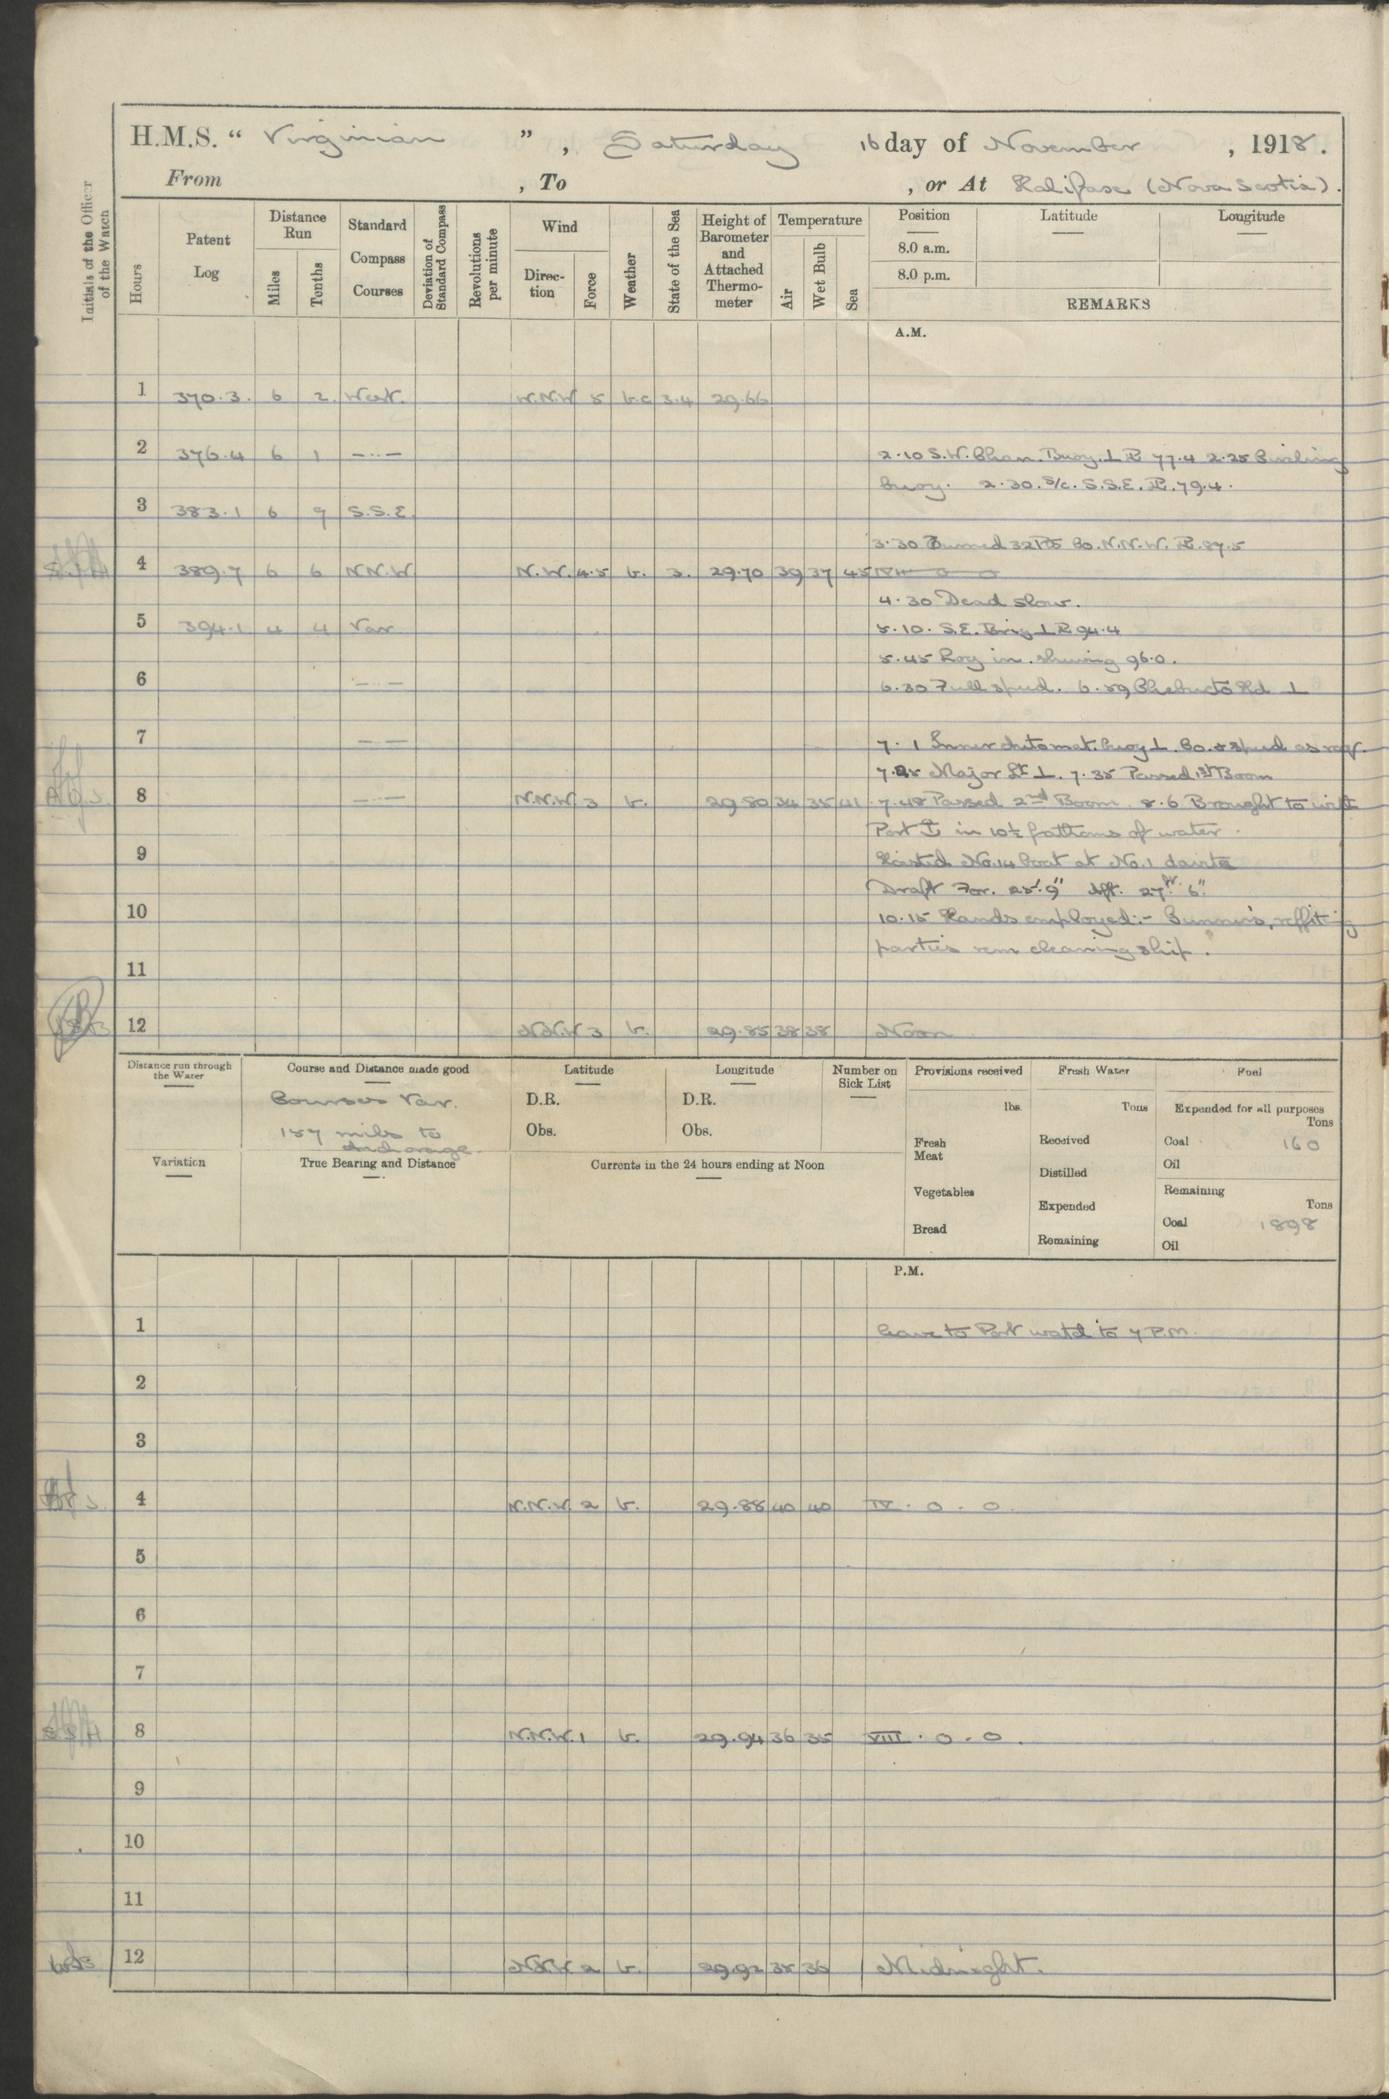 H.M.S. “ Virginian ” , Saturday 16 day of November , 1918.
From , To , or At Halifax (Nova Scotia).
Initials of the Officer of the Watch
Hours
Patent Log
Distance Run
Miles
Tenths
Standard Compass Courses
Deviation of Standard Compass
Revolutions per minute
Wind
Direc-tion
Force
Weather
State of the Sea
Height of Barometer and Attached Thermo-meter
Temperature
Air
Wet Bulb
Sea
Position
Latitude
Longitude
8.0 a.m.
8.0 p.m.
REMARKS
A.M.
1 370.3. 6 2. West. W.N.W 5 b.c 3.4 29.66
2 376.4 6 1 —..— 2.10 S.W. Chan. Buoy. ⊥ P.L. 77.4 2.25 Circling
buoy. 2.30. S/c. S.S.E. P.L. 79.4.
3 383.1 6 7 S.S.E.
3.30 Turned 32 Pts Co. N.N.W. P.L. 87.5
4 389.7 6 6 N.N.W N.W. 4.5 b. 3. 29.70 39 37 45 IV. o o
4.30 Dead slow.
5 394.1 4 4 Var 5.10. S.E. Buoy ⊥ P.L. 94.4
5.45 Log in. showing 96.0.
6 —..— 6.30 Full speed. 6.59 Chebucto Hd ⊥
7 —..— 7.1 Inner Automat. buoy ⊥. Co. & speed as req.
7.25 Major Lt ⊥. 7.35 Passed 1st Boom
8 —..— N.N.W 3 b. 29.80 34 35 41 7.48 Passed 2nd Boom. 8.6 Brought to with
Port ⚓ in 10½ fathoms of water.
9 Hoisted No.14 boat at No.1 davits
Draft For. 25'.9" Aft. 27ft. 6".
10 10.15 Hands employed:- Gunners, refitting
parties rem cleaning ship.
11
12 N.N.W 3 b. 29.85 38 38 Noon
Distance run through the Water
Course and Distance made good
Courses Var.
157 miles to
Anchorage.
Latitude
D.R.
Obs.
Longitude
D.R.
Obs.
Number on Sick List
Provisions received
lbs.
Fresh Meat
Vegetables
Bread
Fresh Water
Tons
Received
Distilled
Expended
Remaining
Fuel
Expended for all purposes
Tons
Coal 160
Oil
Remaining
Tons
Coal 1898
Oil
Variation
True Bearing and Distance
Currents in the 24 hours ending at Noon
P.M.
1 Leave to Port watch to 7 P.M.
2
3
4 N.N.W. 2 b. 29.88 40 40 IV. o. o.
5
6
7
8 N.N.W. 1 b. 29.94 36 35 VIII. o. o.
9
10
11
12 N.N.W 2 b. 29.92 38 36 Midnight.